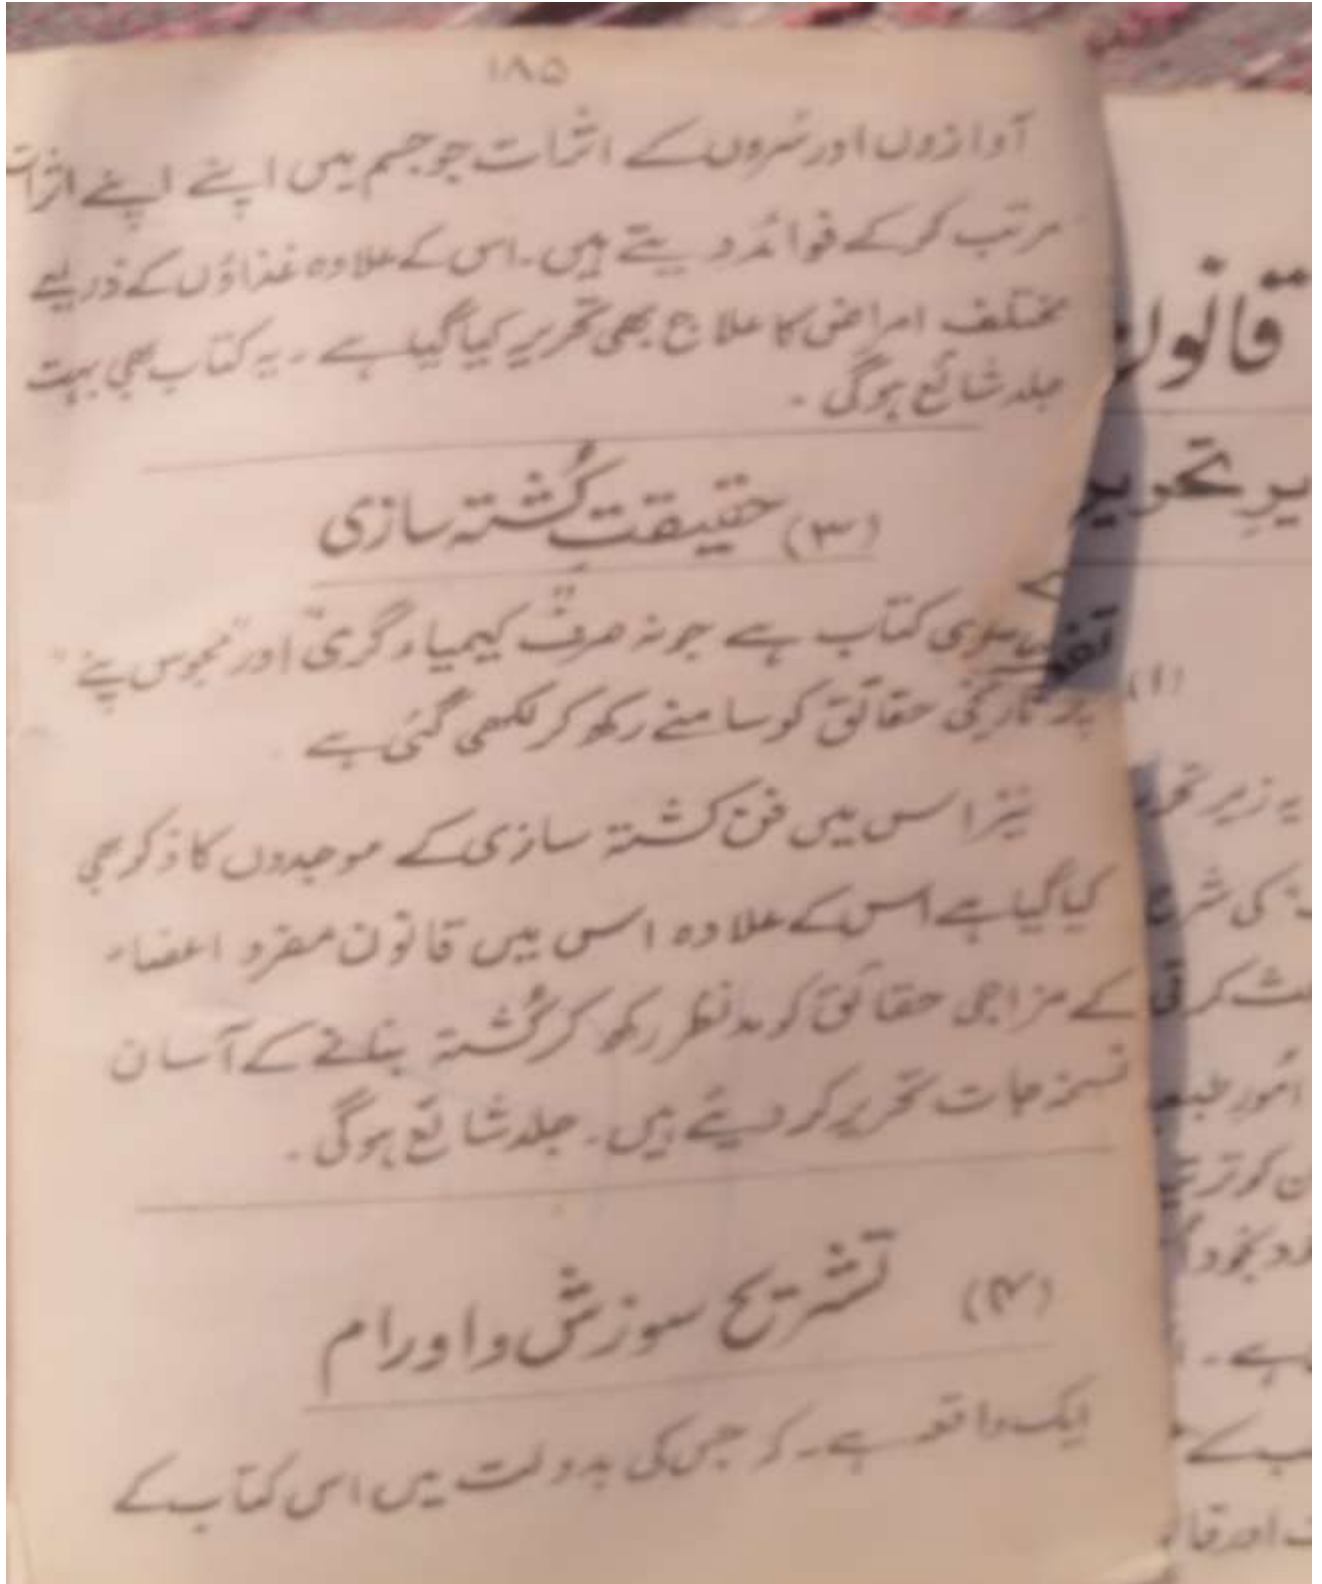 ۱۸۵
آوازوں اور سُروں کے اثرات جو جسم میں اپنے اپنے اثرات
مرتب کر کے فوائد دیتے ہیں۔ اس کے علاوہ غذاؤں کے ذریعے
مختلف امراض کا علاج بھی تحریر کیا گیا ہے۔ یہ کتاب بھی بہت
جلد شائع ہوگی۔
(۳) حقیقتِ کُشتہ سازی
کتاب ہے جو نہ صرف "کیمیاء گری" اور "مجوس پنے"
حقائق کو سامنے رکھ کر لکھی گئی ہے
نیز اس میں فن کشتہ سازی کے موجدوں کا ذکر بھی
کیا گیا ہے اس کے علاوہ اس میں قانون مفرد اعضاء
کے مزاجی حقائق کو مدنظر رکھ کر کُشتہ بنانے کے آسان
نسخہ جات تحریر کر دیئے ہیں۔ جلد شائع ہوگی۔
(۴) تشریح سوزش و اورام
ایک واقعہ ہے۔ کہ جس کی بدولت میں اس کتاب کے
قانون
یرِ تحریر
(۱)
یہ زیر تحر
کی شرح
امُورِ طبعہ
ن کو ترتیب
ہے۔
اور قا